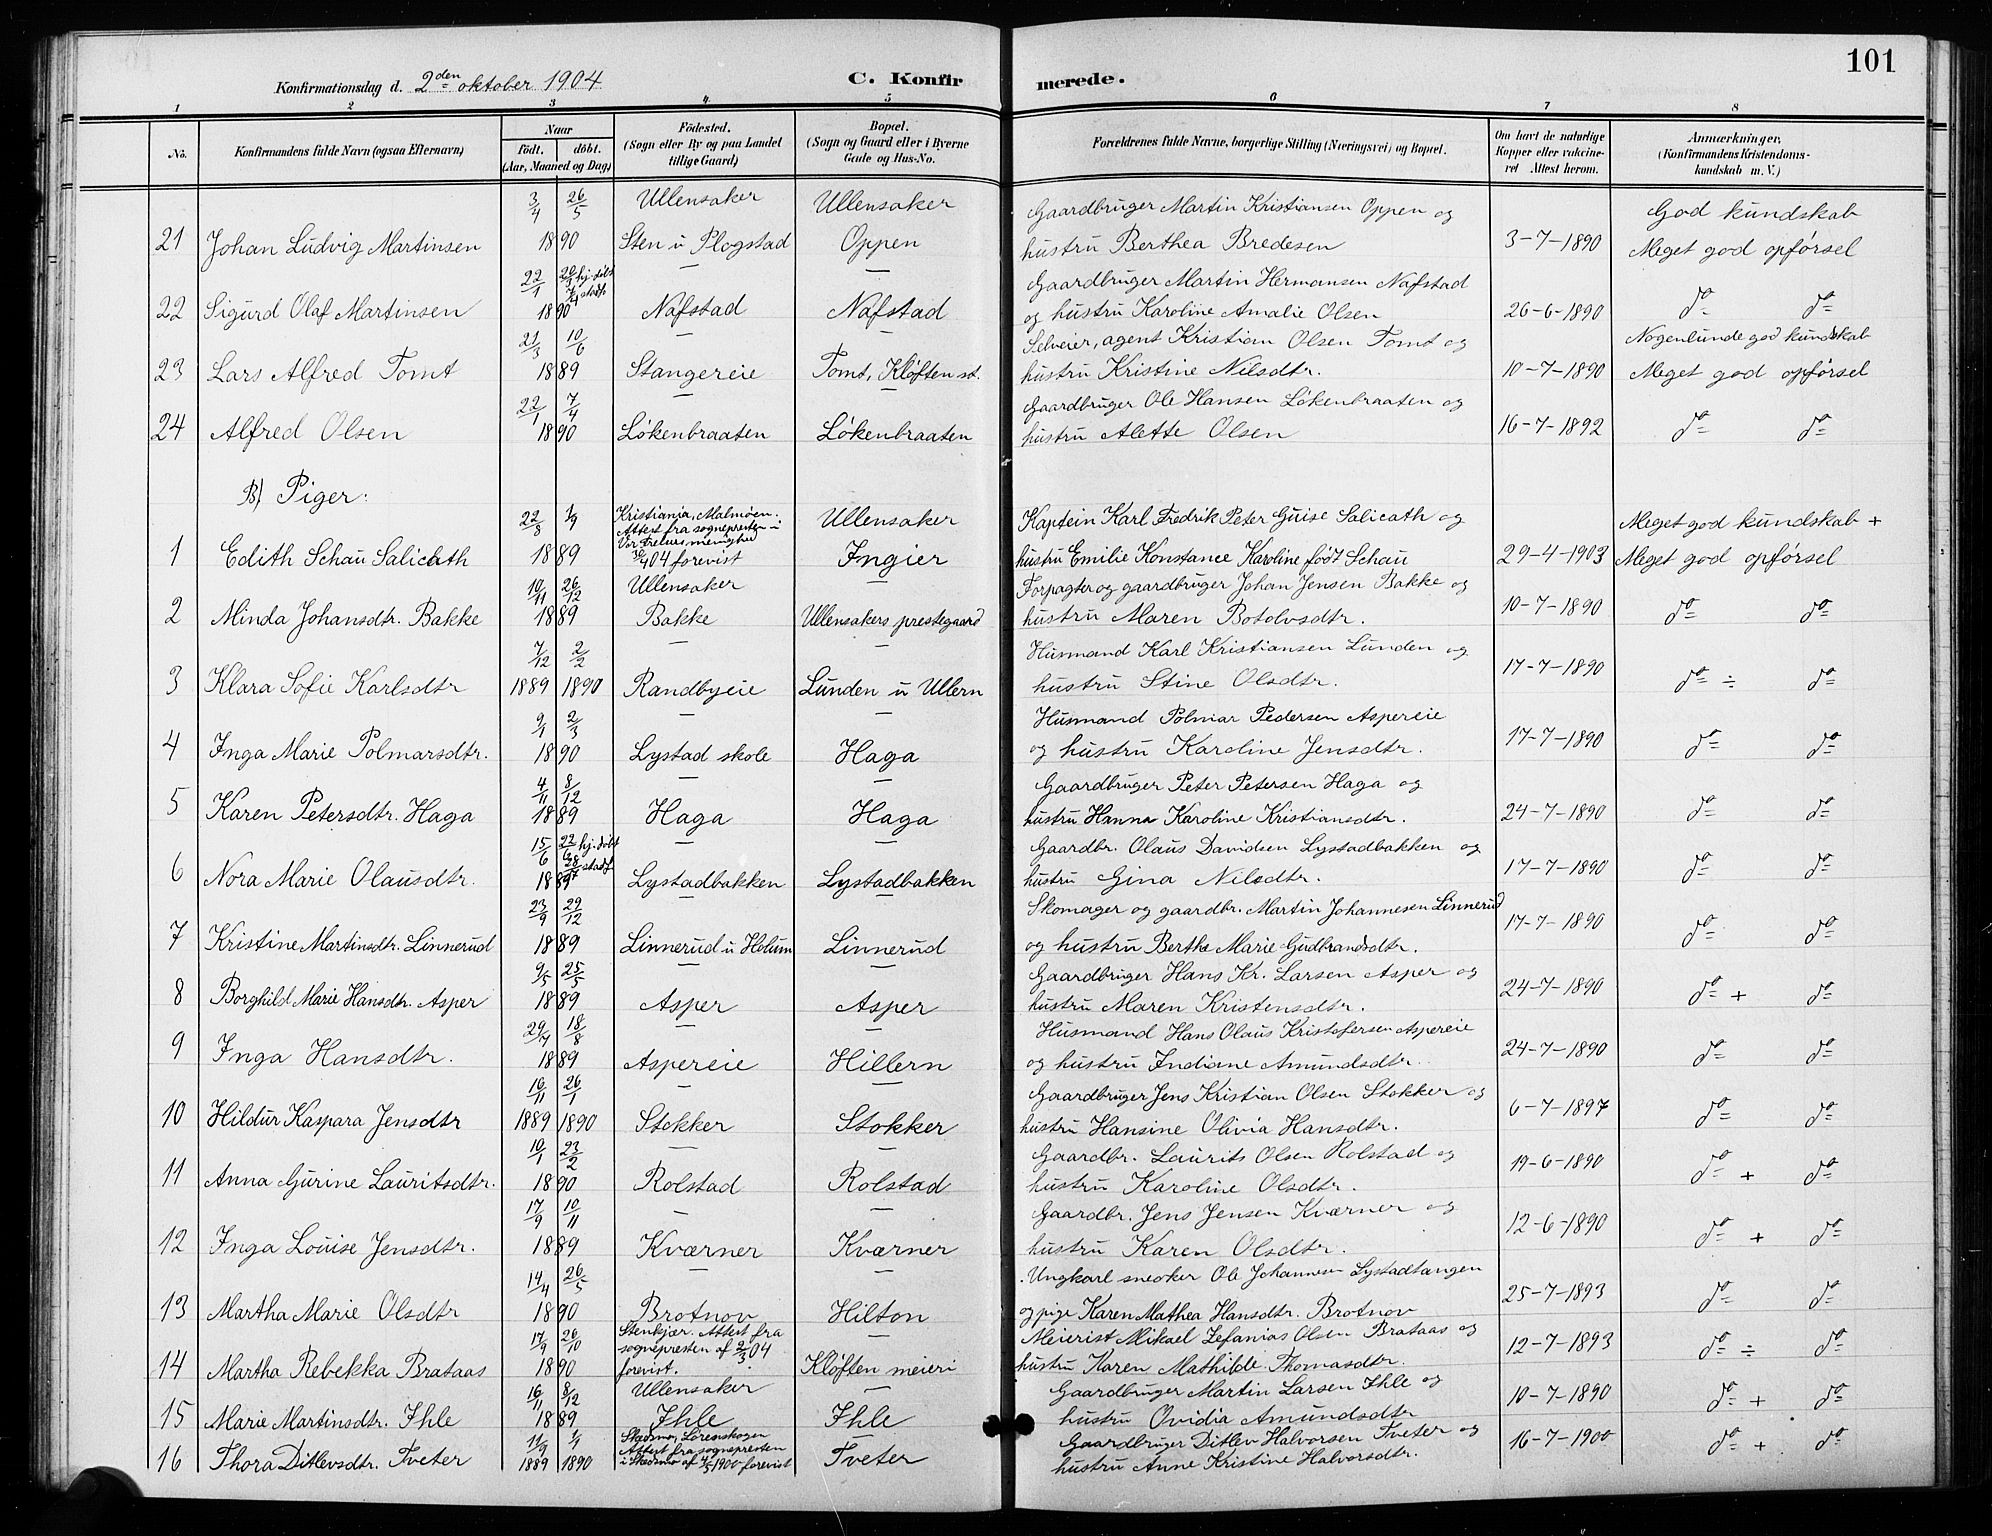 101
Konfirmationsdag d. 2den oktober 1904 C. Konfir merede.
1 2 3 4 5 6 7 8
No. Konfirmandens fulde Navn (ogsaa Efternavn) Naar Födt. döbt. (Aar, Maaned og Dag) Födested. (Sogn eller By og paa Landet tillige Gaard) Bopæl. (Sogn og Gaard eller i Byerne Gade og Hus-No. Forældrenes fulde Navne, borgerlige Stilling (Næringsvei) og Bopæl. Om havt de naturlige Kopper eller vakcineret. Attest herom. Anmærkninger, (Konfirmandens Kristendomskundskab m. V.)
3/4 26/5 Ullensaker Ullensaker Gaardbruger Martin Kristiansen Oppen og God kundskab
21 Johan Ludvig Martinsen 1890 Sten u Plogstad Oppen hustru Berthea Bredesen 3-7-1890 Meget god opførsel
22/1 hj. døbt stadf. — — Gaardbruger Martin Hermansen Nafstad
22 Sigurd Olaf Martinsen 1890 Nafstad Nafstad og hustru Karoline Amalie Olsen 26-6-1890 do do
21/3 10/6 — — Selveier, agent Kristian Olsen Tomt og Nogenlunde god kundskab
23 Lars Alfred Tomt 1889 Stangereie Tomt, Kløften st. hustru Kristine Nilsdtr. 10-7-1890 Meget god opførsel
22/1 7/4 — Gaardbruger Ole Hansen Løkenbraaten og
24 Alfred Olsen 1890 Løkenbraaten Løkenbraaten hustru Alette Olsen 16-7-1892 do do
B) Piger:
22/8 1/9 Kristiania, Malmøen. Attest fra sognepresten i Vor Frelsers menighed Ullensaker Kaptein Karl Fredrik Peter Guise Salicath og Meget god kundskab +
1 Edith Schau Salicath 1889 04 forevist Ingier hustru Emilie Konstance Karoline født Schau 29-4-1903 Meget god opførsel
10/11 26/12 Ullensaker — Forpagter og gaardbruger Johan Jensen Bakke og
2 Minda Johansdtr. Bakke 1889 Bakke Ullensakers prestegaard hustru Maren Botolvsdtr. 10-7-1890 do do
7/12 2/2 — Husmand Karl Kristiansen Lunden og
3 Klara Sofie Karlsdtr 1889 1890 Randbyeie Lunden u Ullern hustru Stine Olsdtr. 17-7-1890 do ÷ do
9/1 2/3 — — Husmand Polmar Pedersen Aspereie
4 Inga Marie Polmarsdtr. 1890 Lystad skole Haga og hustru Karoline Jensdtr. 17-7-1890 do do
4/11 8/12 — — Gaardbruger Peter Petersen Haga og
5 Karen Petersdtr. Haga 1889 Haga Haga hustru Hanna Karoline Kristiansdtr. 24-7-1890 do do
15/6 22/6 hj. døbt stadf — — Gaardbr. Olaus Davidsen Lystadbakken og
6 Nora Marie Olausdtr. 1889 Lystadbakken Lystadbakken hustru Gina Nilsdtr. 17-7-1890 do do
23/9 29/12 — — Skomager og gaardbr. Martin Johannesen Linnerud
7 Kristine Martinsdtr. Linnerud 1889 Linnerud u Holum Linnerud og hustru Berthe Marie Gudbrandsdtr. 17-7-1890 do do
9/5 25/5 — — Gaardbruger Hans Kr. Larsen Asper og
8 Borghild Marie Hansdtr. Asper 1889 Asper Asper hustru Maren Kristensdtr. 24-7-1890 do + do
29/7 18/8 — — Husmand Hans Olaus Kristofersen Aspereie
9 Inga Hansdtr. 1889 Aspereie Hillern og hustru Indiane Amundsdtr. 24-7-1890 do do
16/11 26/1 — — Gaardbruger Jens Kristian Olsen Stokker og
10 Hildur Kaspara Jensdtr 1889 1890 Stokker Stokker hustru Hansine Olivia Hansdtr. 6-7-1897 do do
10/1 23/2 — — Gaardbr. Laurits Olsen Rolstad og
11 Anna Gurine Lauritsdtr. 1890 Rolstad Rolstad hustru Karoline Olsdtr. 19-6-1890 do + do
17/9 10/11 — — Gaardbr. Jens Jensen Kværner og
12 Inga Louise Jensdtr. 1889 Kværner Kværner hustru Karen Olsdtr. 12-6-1890 do + do
14/4 26/5 — — Ungkarl snedker Ole Johannesen Lystadtangen
13 Martha Marie Olsdtr 1890 Brotnov Hilton og pige Karen Mathea Hansdtr. Brotnov 25-7-1893 do do
17/9 26/10 Stenkjær. Attest fra sognepresten af 2/3 04 Meierist Mikael Zefanias Olsen Brataas og
14 Martha Rebekka Brataas 1890 forevist. Kløften meieri hustru Karen Mathilde Thomasdtr. 12-7-1893 do ÷ do
16/11 8/12 Ullensaker — Gaardbruger Martin Larsen Ihle og
15 Marie Martinsdtr. Ihle 1889 Ihle Ihle hustru Ovidia Amundsdtr 10-7-1890 do + do
11/9 1/1 Skedsmo, Lörenskogen Attest fra sognepresten — Gaardbruger Ditlev Halvorsen Tveter og
16 Thora Ditlevsdtr. Tveter 1889 1890 i Skedsmo af 1900 forevist Tveter hustru Anne Kristine Halvorsdtr. 16-7-1900 do + do